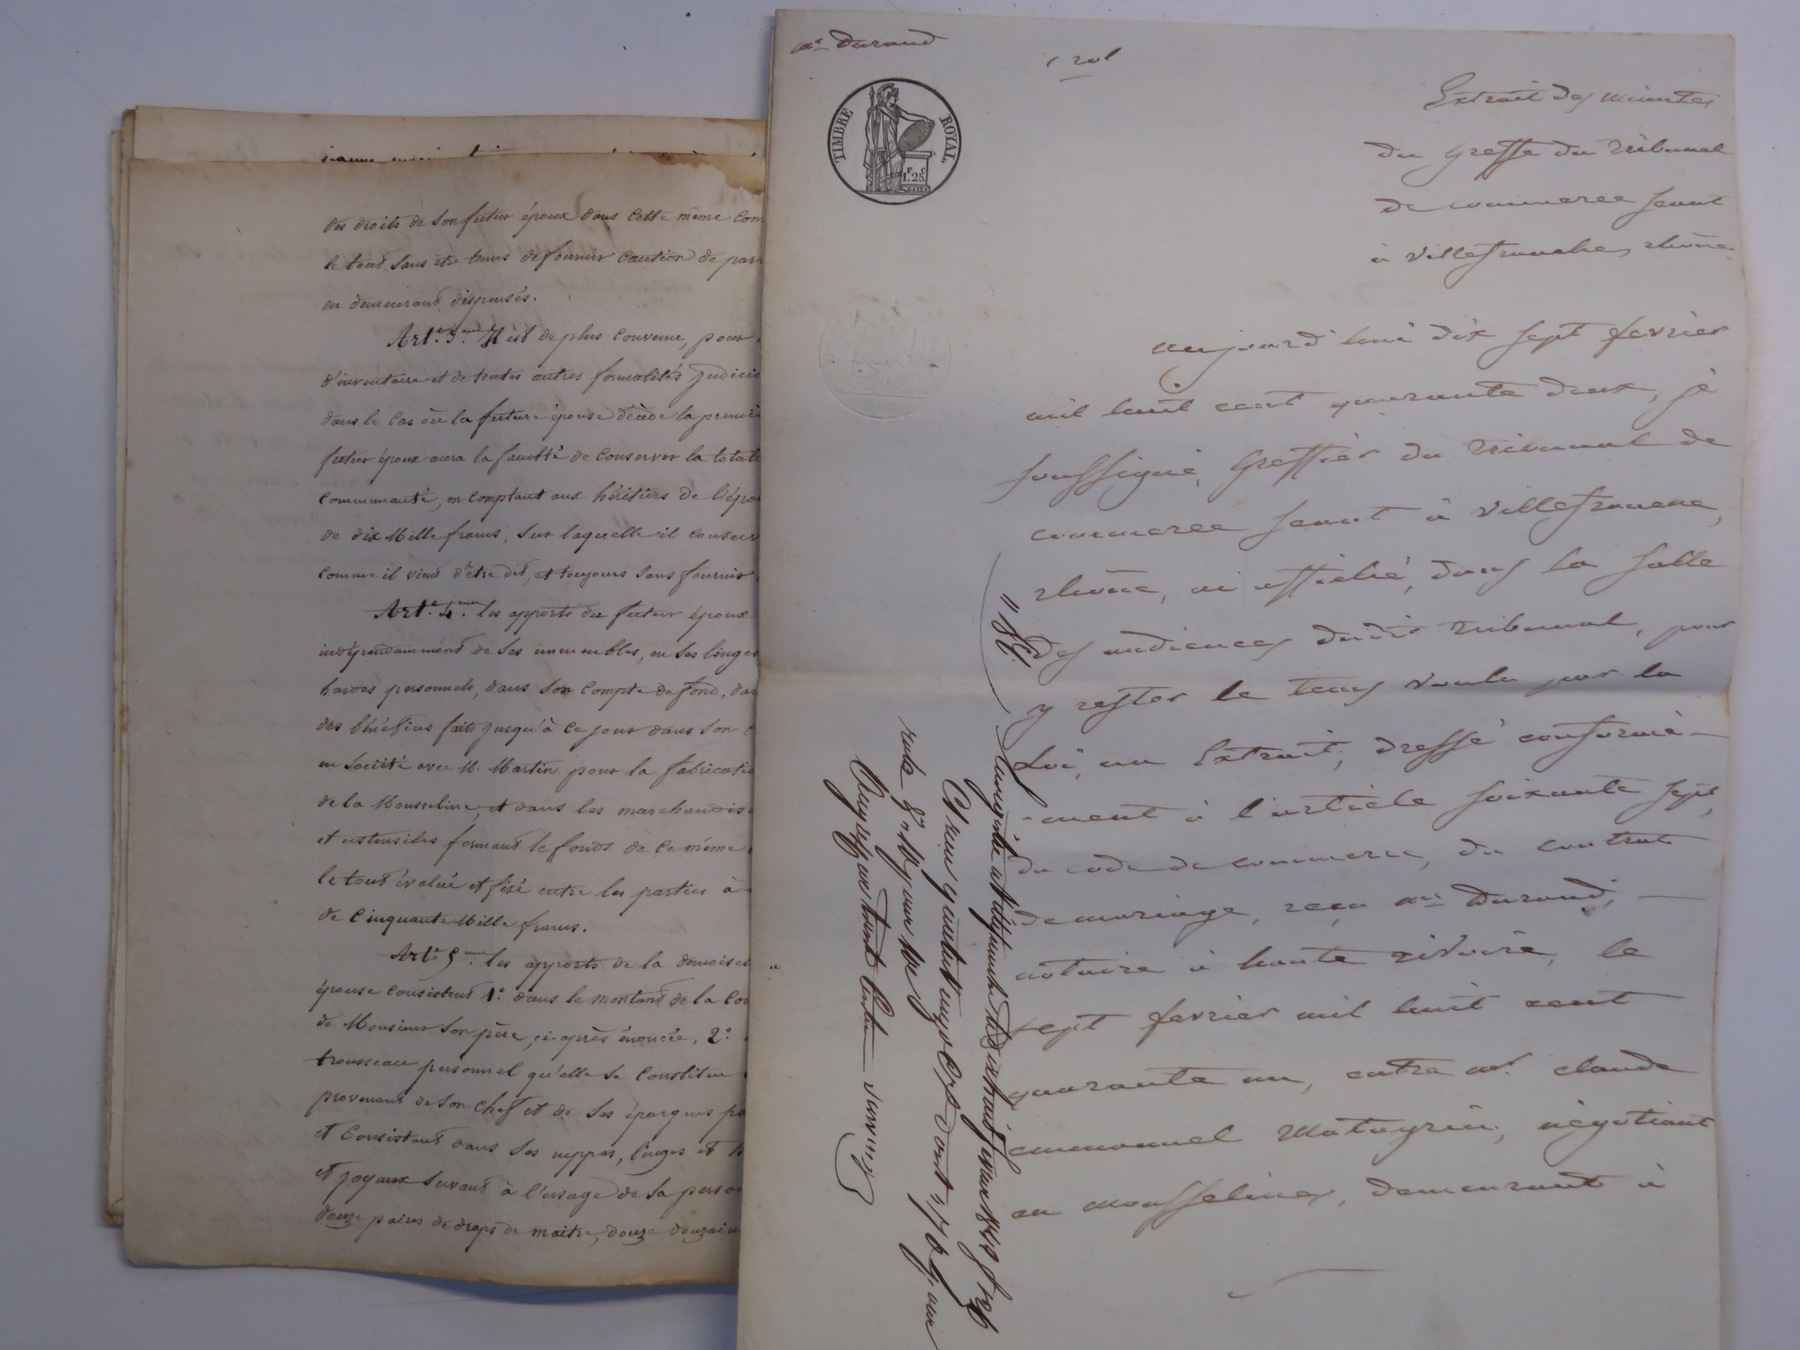 sianne
des droits de son futur époux dans cette même com
le tout sans être tenus de fournir caution de par
en demeurant dispensés.
Art. 3.me Il est de plus convenu, pour
d'inventaire et de toutes autres formalités judici
dans le cas où la future épouse décède la premiè
futur époux aura la faculté de conserver la total
communauté, en comptant aux héritiers de l'épo
de dix Mille francs, sur laquelle il conser
comme il vient d'être dit, et toujours sans fournir
Art. 4.me les apports du futur époux
indépendamment de ses immeubles, en ses linges
hardes personnels, dans son compte de fond, da
des bénéfices faits jusqu'à ce jour dans son
en société avec M. Martin pour la fabricati
de la Mousseline, et dans les marchandises
et ustensiles formant le fonds de ce même
le tout évalué et fixé entre les parties à
de Cinquante Mille francs.
Art. 5.me les apports de la demoisel
épouse consistent 1.° dans le montant de la Con
de Monsieur son père, ci-après énoncée, 2.°
trousseau personnel qu'elle se Constitue
provenant de son chef et de ses épargnes pa
et Consistant dans ses nippes, linges et
et joyaux servant à l'usage de sa perso
douze paires de draps de maître, douze douzain
Me Durand
1 rol
TIMBRE ROYAL
1.F 25.C
Extrait des minutes
du Greffe du Tribunal
de commerce séant
à Villefranche, rhône.
aujourd'hui dix sept fevrier
mil huit cent quarante deux, je
soussigné, Greffier du Tribunal de
commerce séant à Villefranche,
rhône, ai affiché, dans la salle
des audiences dudit Tribunal, pour
y rester le tems voulu par la
Loi, un Extrait, dressé conformé-
-ment à l'article soixante sept,
du code de commerce, du contrat
de mariage, reçu Me Durand,
notaire à haute rivoire, le
sept fevrier mil huit cent
quarante un, entre Mr. claude
emmanuel Matagrin, négotiant
en mousselines, demeurant à